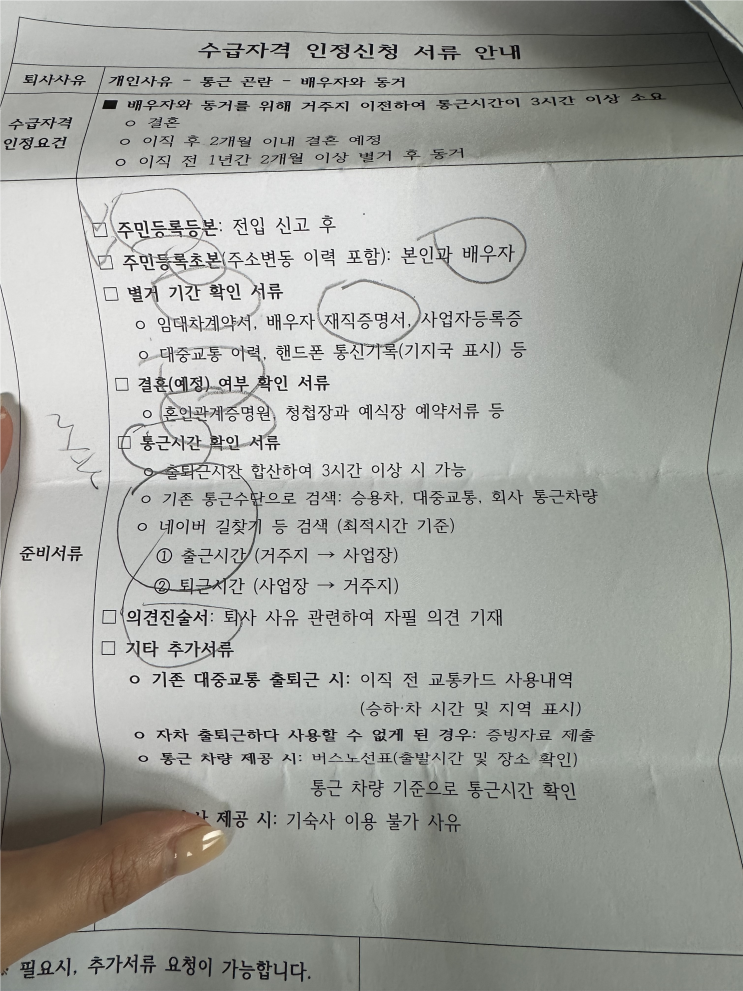 수급자격 인정신청 서류 안내
퇴사사유 개인사유 - 통근 곤란 - 배우자와 동거
수급자격 인정요건
■ 배우자와 동거를 위해 거주지 이전하여 통근시간이 3시간 이상 소요
○ 결혼
○ 이직 후 2개월 이내 결혼 예정
○ 이직 전 1년간 2개월 이상 별거 후 동거
준비서류
□ 주민등록등본: 전입 신고 후
□ 주민등록초본(주소변동 이력 포함): 본인과 배우자
□ 별거 기간 확인 서류
○ 임대차계약서, 배우자 재직증명서, 사업자등록증
○ 대중교통 이력, 핸드폰 통신기록(기지국 표시) 등
□ 결혼(예정) 여부 확인 서류
○ 혼인관계증명원, 청첩장과 예식장 예약서류 등
□ 통근시간 확인 서류
○ 출퇴근시간 합산하여 3시간 이상 시 가능
○ 기존 통근수단으로 검색: 승용차, 대중교통, 회사 통근차량
○ 네이버 길찾기 등 검색 (최적시간 기준)
① 출근시간 (거주지 → 사업장)
② 퇴근시간 (사업장 → 거주지)
□ 의견진술서: 퇴사 사유 관련하여 자필 의견 기재
□ 기타 추가서류
○ 기존 대중교통 출퇴근 시: 이직 전 교통카드 사용내역
(승하·차 시간 및 지역 표시)
○ 자차 출퇴근하다 사용할 수 없게 된 경우: 증빙자료 제출
○ 통근 차량 제공 시: 버스노선표(출발시간 및 장소 확인)
통근 차량 기준으로 통근시간 확인
제공 시: 기숙사 이용 불가 사유
※ 필요시, 추가서류 요청이 가능합니다.